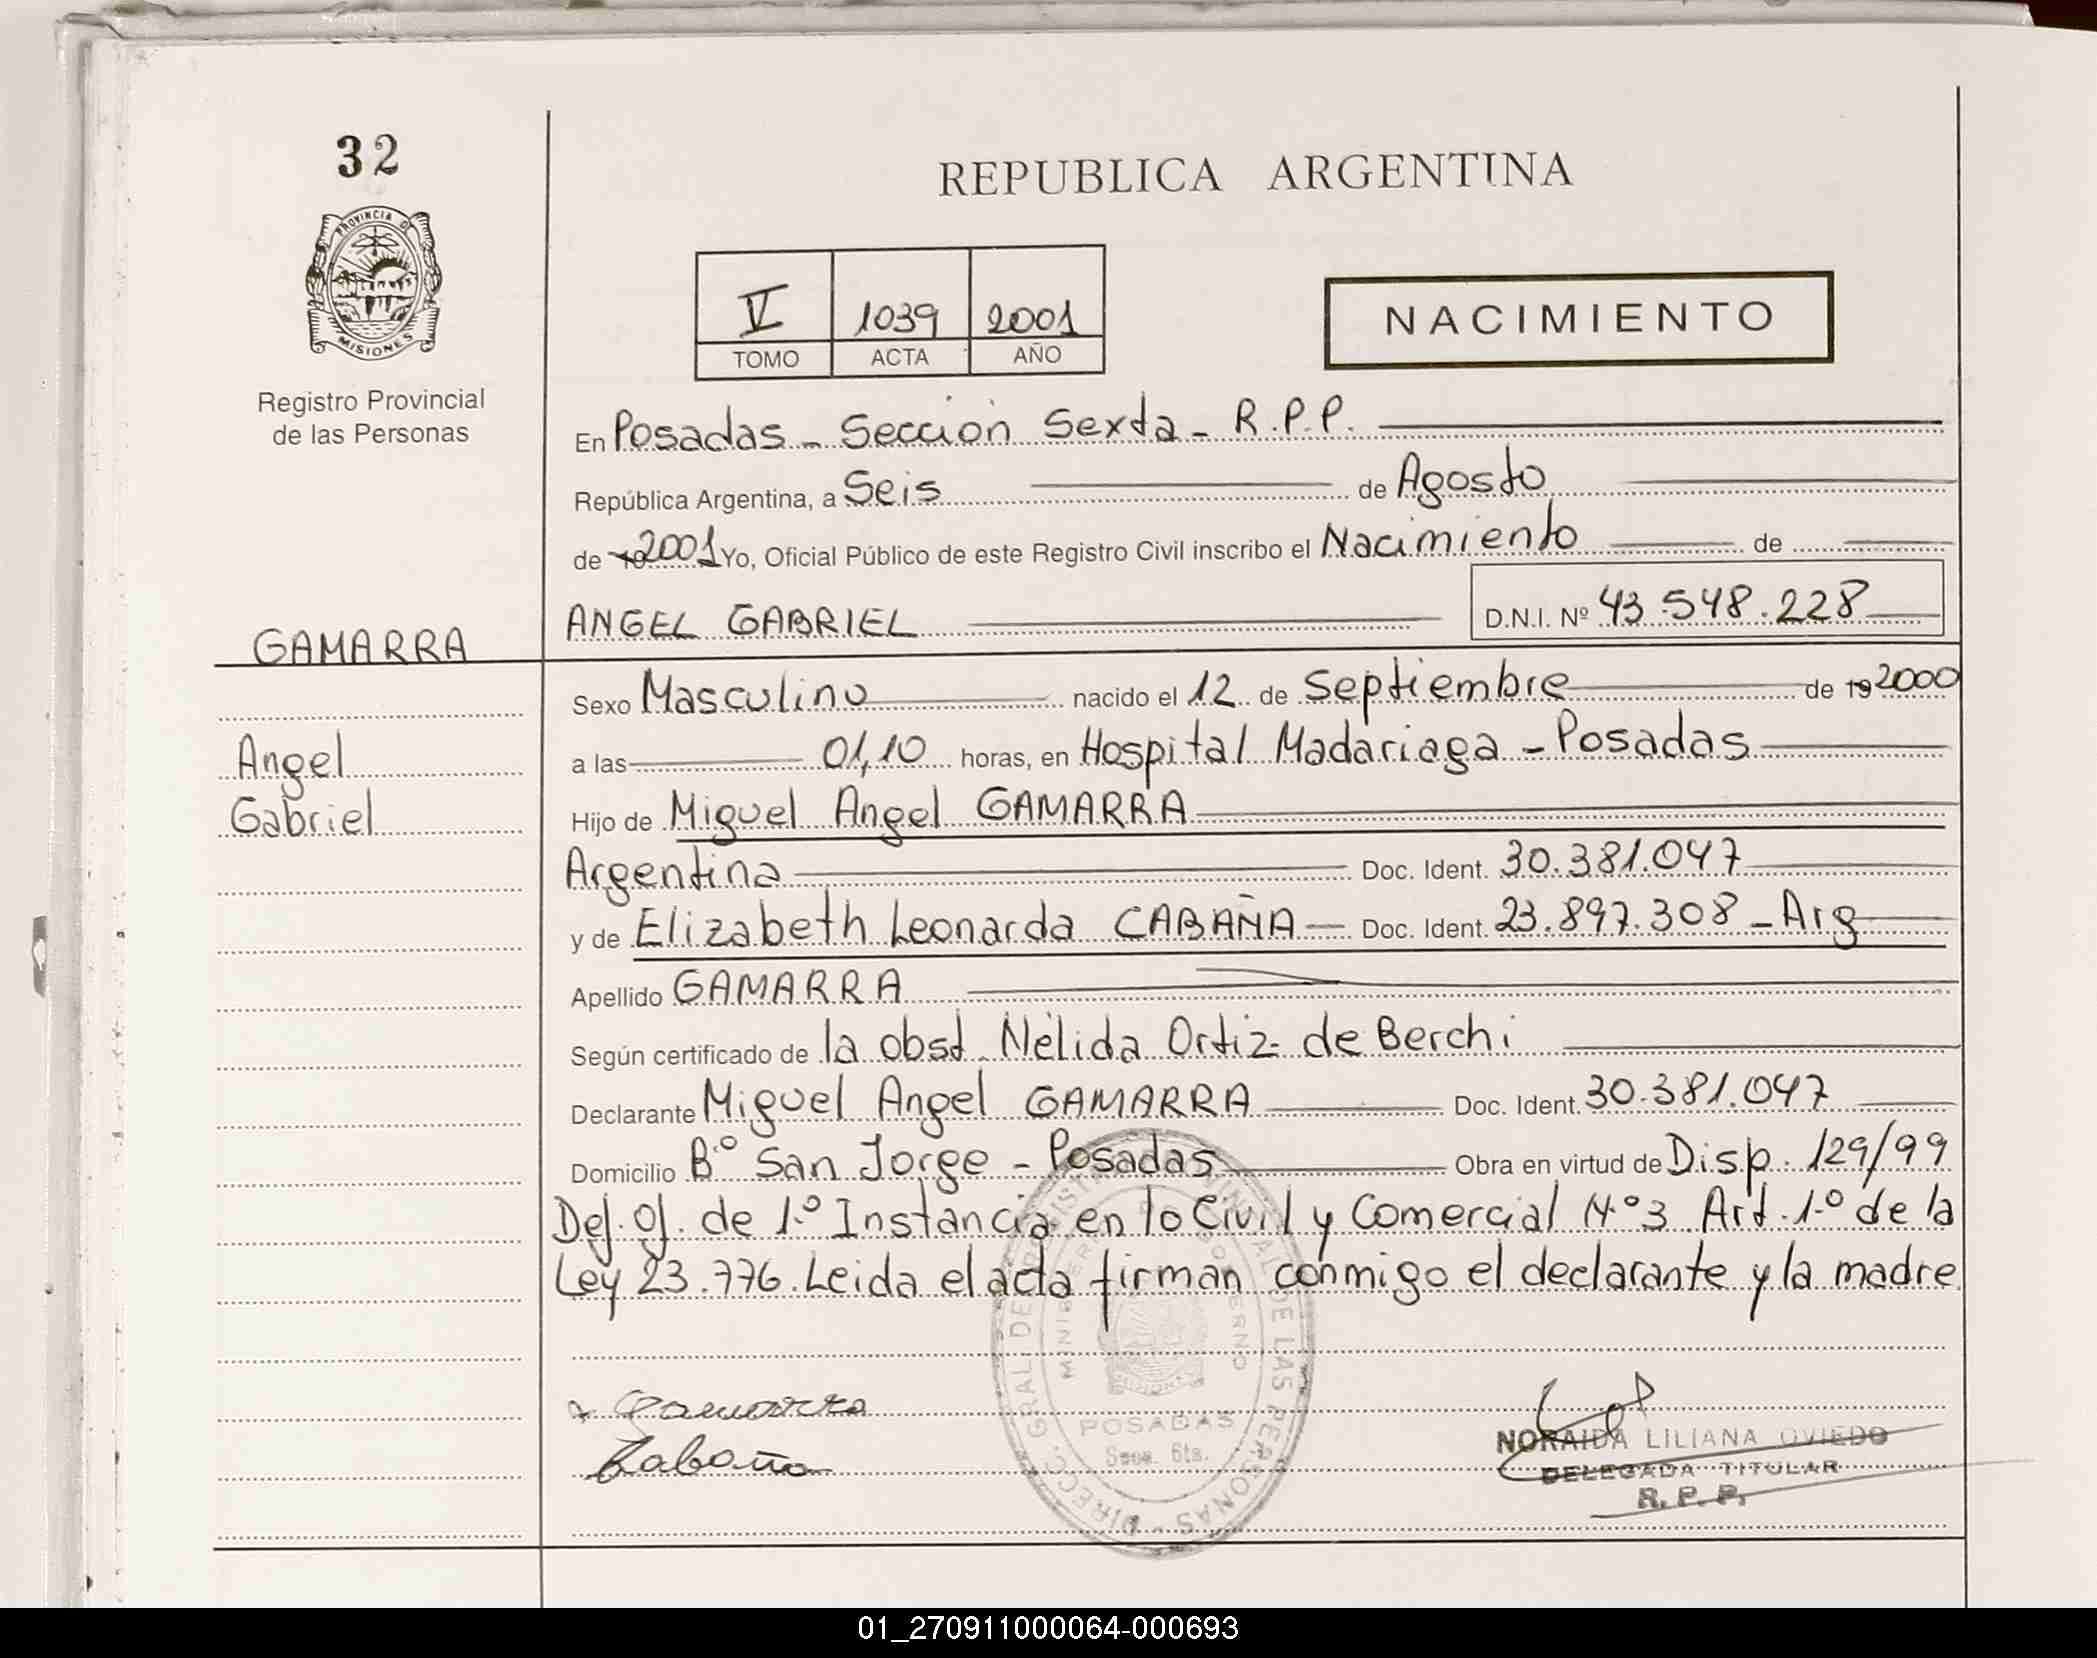 32
PROVINCIA DE
MISIONES
Registro Provincial
de las Personas
REPUBLICA ARGENTINA
V 1039 2001
TOMO ACTA AÑO
NACIMIENTO
En Posadas - Sección Sexta - R.P.P.
República Argentina, a Seis de Agosto
de 19 2001 Yo, Oficial Público de este Registro Civil inscribo el Nacimiento de
ANGEL GABRIEL D.N.I. Nº 43.548.228
GAMARRA
Sexo Masculino nacido el 12 de Septiembre de 19 2000
Angel
a las 01,10 horas, en Hospital Madariaga - Posadas
Gabriel
Hijo de Miguel Angel GAMARRA
Argentina Doc. Ident. 30.381.047
y de Elizabeth Leonarda CABAÑA Doc. Ident. 23.897.308 - Arg
Apellido GAMARRA
Según certificado de la obst. Nélida Ortiz de Berchi
Declarante Miguel Angel GAMARRA Doc. Ident. 30.381.047
Domicilio Bº San Jorge - Posadas Obra en virtud de Disp. 129/99
Def. Of. de 1º Instancia en lo Civil y Comercial Nº 3 Art. 1º de la
Ley 23.776. Leida el acta firman conmigo el declarante y la madre
Gamarra
Cabaña
DIRECC. GRAL. DE REGISTRO PROVINCIAL DE LAS PERSONAS
MINISTERIO DE GOBIERNO
MISIONES
POSADAS
Secc. 6ta.
NORAIDA LILIANA OVIEDO
DELEGADA TITULAR
R. P. P.
01_270911000064-000693